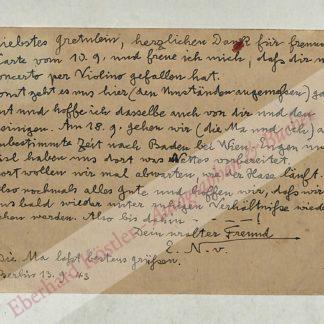 iebstes Gretulein, herzlichen Dank für freun
Karte vom 10.9. und freue ich mich, dass dir m
Concerto per Violino gefallen hat.
onst geht es uns hier (den Umständen angemessen) g
ut und hoffe ich dasselbe auch von dir und dem
einigen. Am 18.9. gehen wir (die Ma und ich) a
unbestimmte Zeit nach Baden bei Wien. Ligen nun
ist haben uns dort was Nettes vorbereitet.
ort wollen wir mal abwarten, wie der Hase läuft.
lso nochmals alles Gute und hoffen wir, dass wir
ns bald wieder unter Verhältnisse wiede
ehen werden. Also bis dahin !
Dein uralter Freund
E. N. v.
Die Ma lässt bestens grüssen.
13. 43
Eberhard Köstler Autographen & Bücher